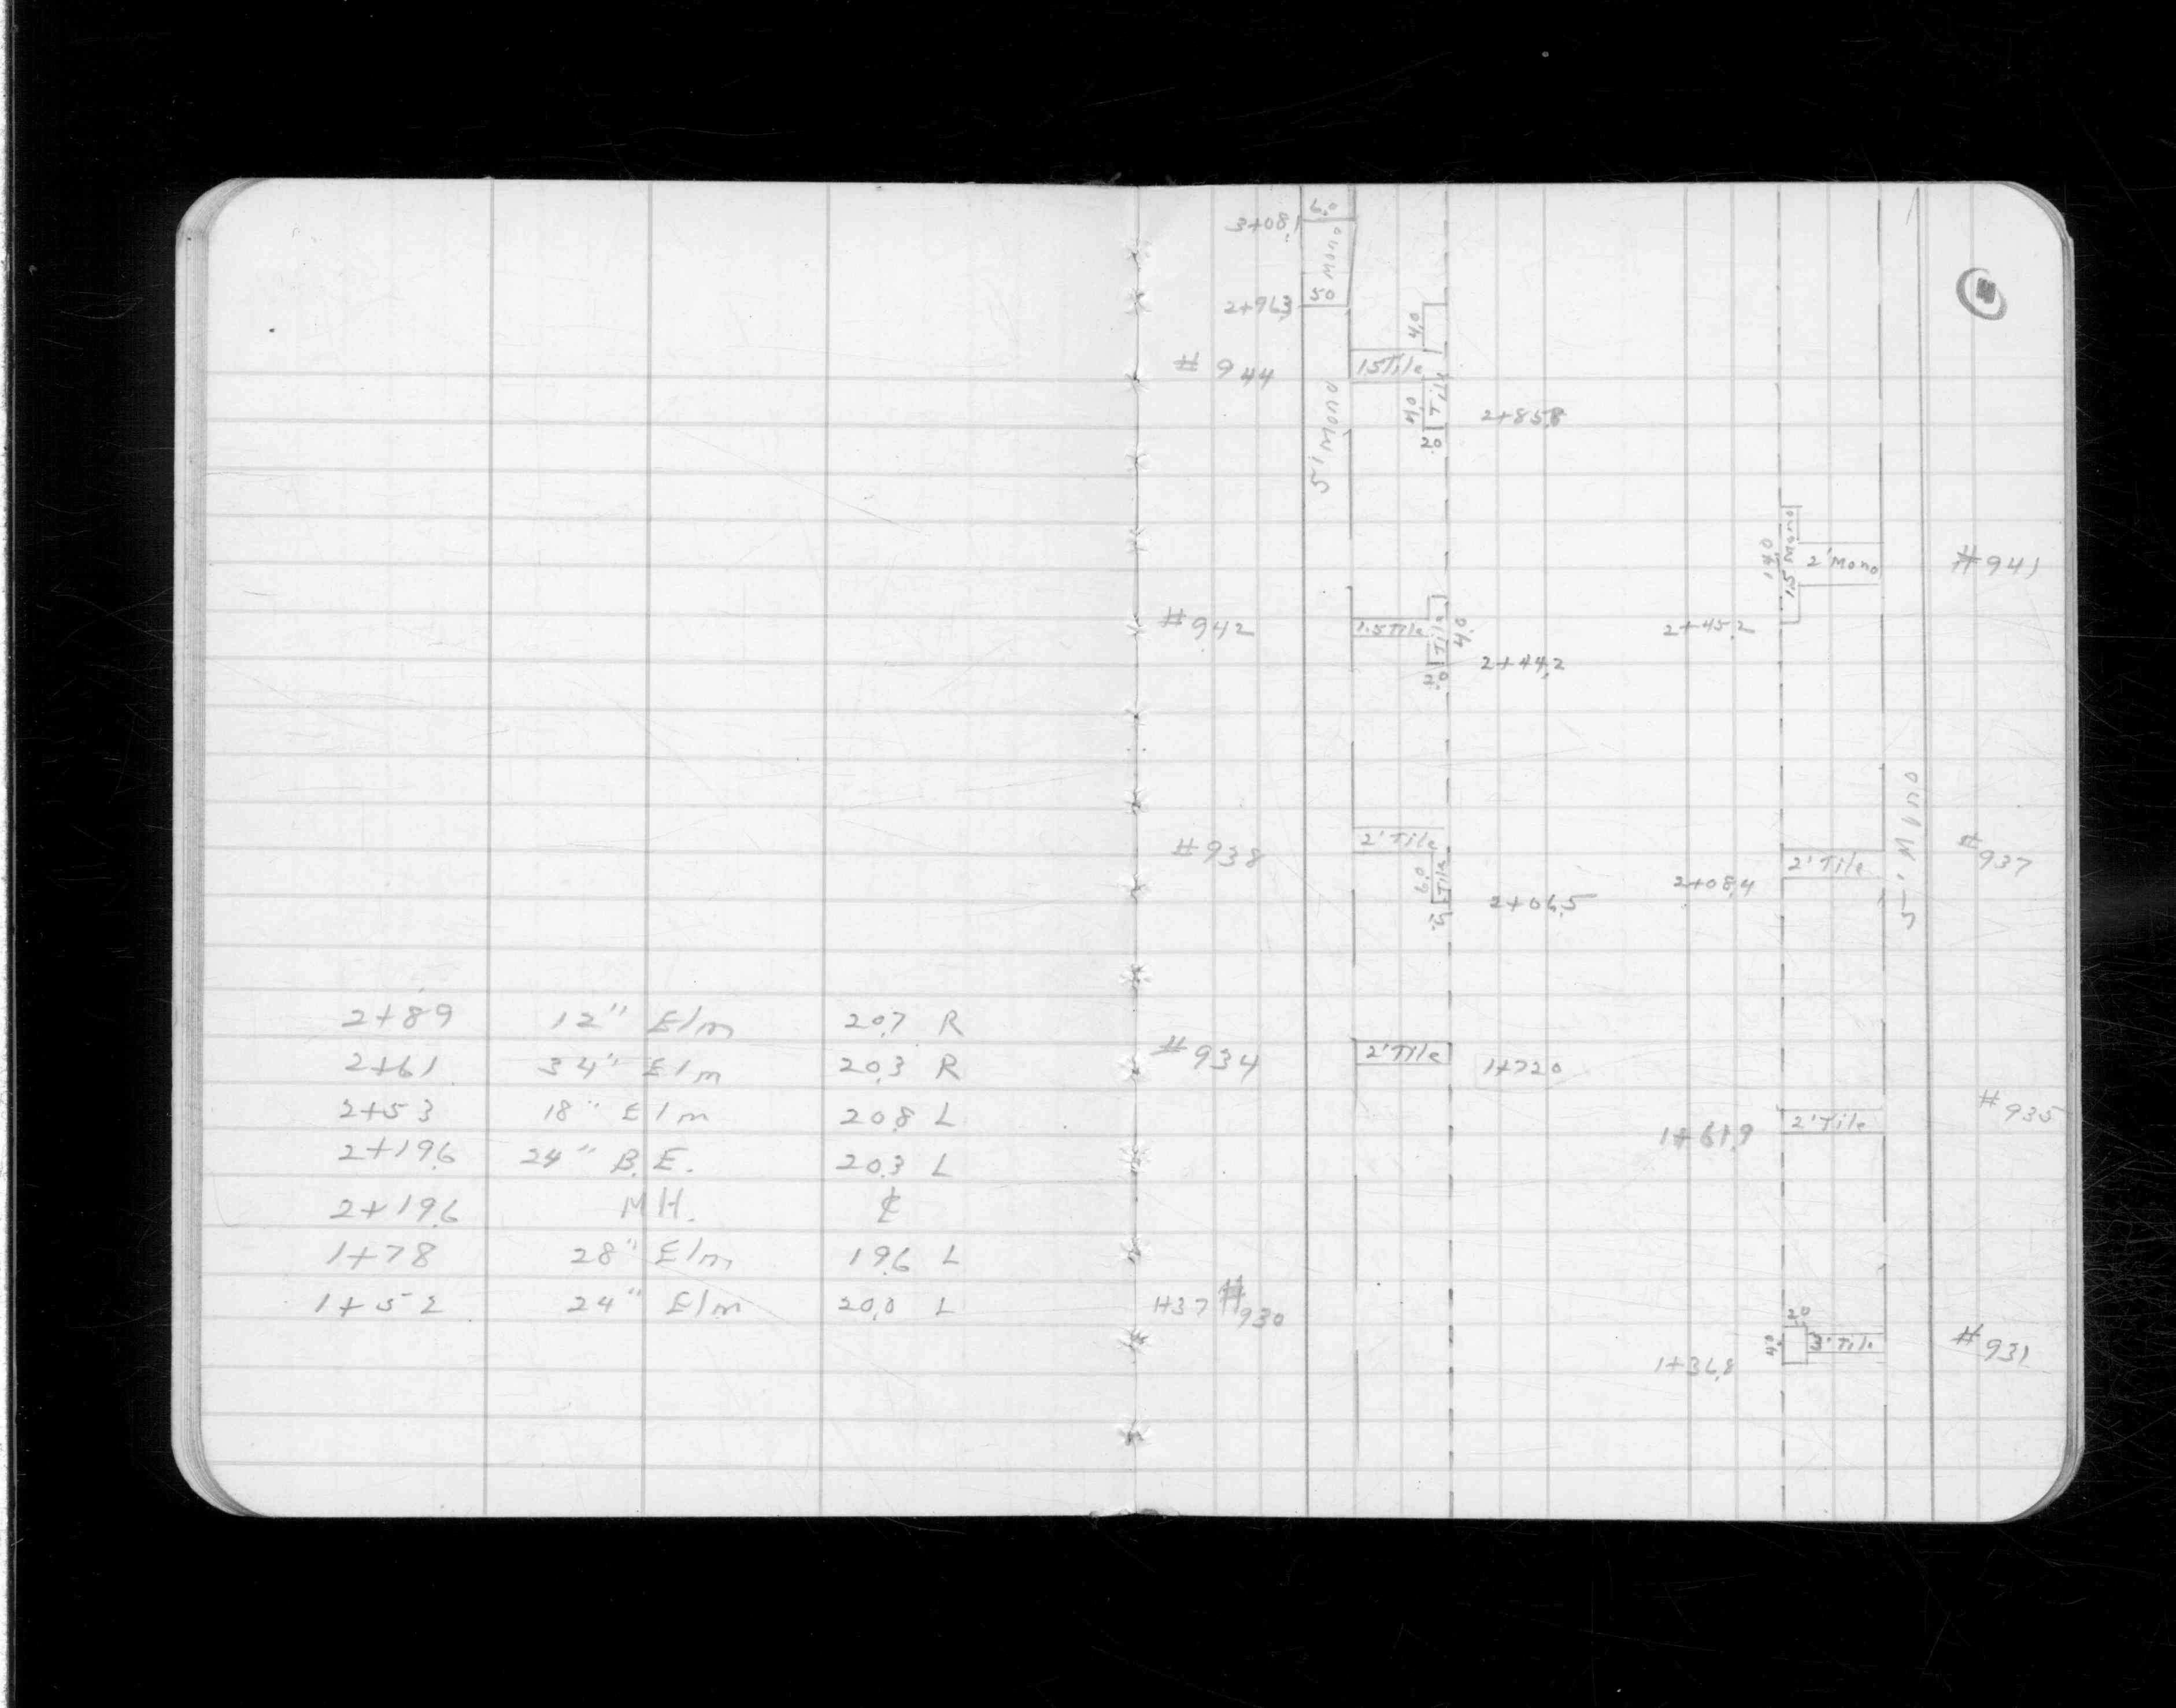 2+89 12" Elm 20.7 R
2+61 34" Elm 20.3 R
2+53 18" Elm 20.8 L
2+19.6 24" B.E. 20.3 L
2+19.6 M.H. ₵
1+78 28" Elm 19.6 L
1+52 24" Elm 20.0 L
6.0
3+08.1
Mono
50
2+96.3
4.0
#944
1.5 Tile
Tile
4.0
2.0
2+85.8
5' Mono
14.0
1.5 Mono
2' Mono
#941
2+45.2
#942
1.5 Tile
Tile
4.0
2.0
2+44.2
5' Mono
#938
2' Tile
6.0
Tile
2+06.5
2+08.4
2' Tile
#937
#934
2' Tile
1+72.0
1+61.9
2' Tile
#935
1+37 #930
2.0
4.0
3' Tile
1+36.8
#931